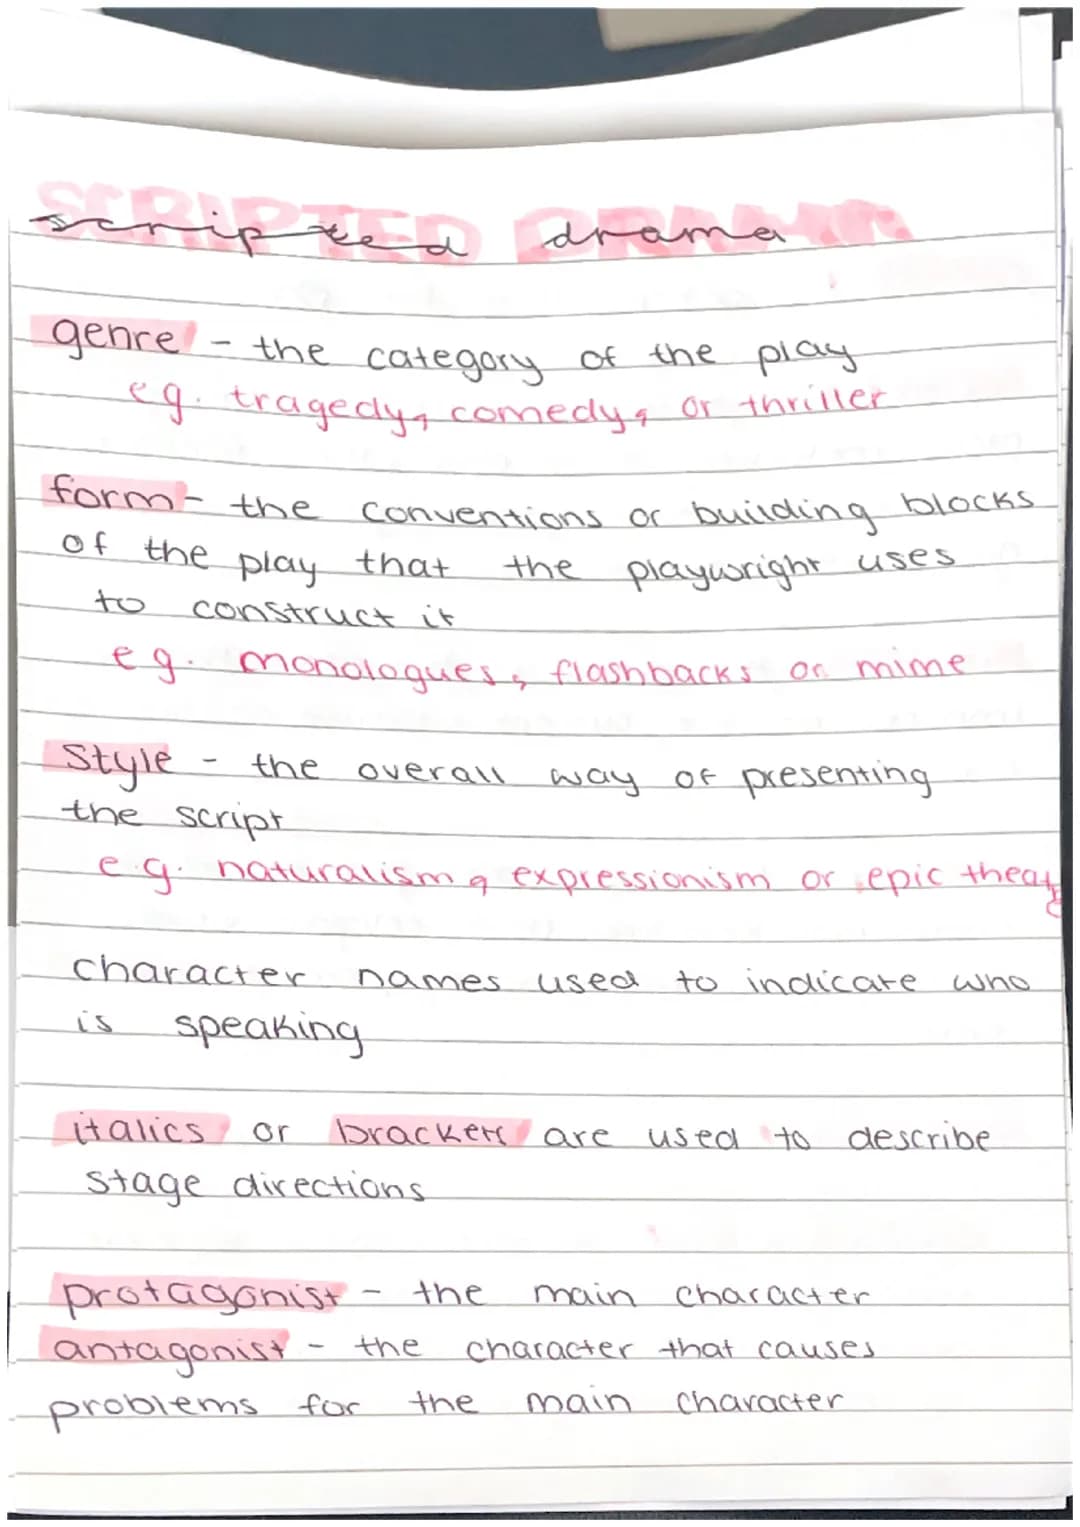 SCRIPTED DRAMA
scripted drama
genre - the category of the play
eg. tragedy, comedy, or thriller
form - the conventions or building blocks
of the play that the playwright uses
to construct it
eg. monologues, flashbacks or mime
Style - the overall way of presenting
the script
e.g. naturalism, expressionism or epic theatre
character names used to indicate who
is speaking
italics or brackets are used to describe
stage directions
protagonist - the main character
antagonist - the character that causes
problems for the main character